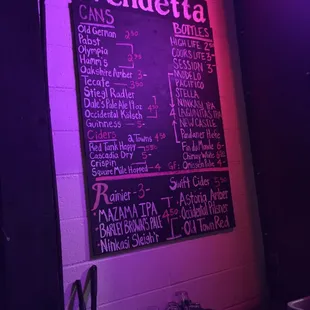 Vendetta
CANS
Old German
Pabst
Olympia
Hamm's
Oakshire Amber 3-
Tecate 3-
Stiegl Radler
Dale's Pale Ale
Occidental Kölsch
Guinness 5-
Ciders 2 Towns 4.50
Red Tank Happy
Cascadia Dry 5-
Crispin
Square Mile Hopped 4
BOTTLES
HIGH LIFE
COORS LITE 3
SESSION 3
MODELO
PACIFICO
STELLA
NINKASI IPA
LAGUNITAS IPA
NEW CASTLE
Fin du Monde 6-
Chimay White
GF:
Rainier - 3-
MAZAMA IPA
BARLEY BROWN'S PALE
Ninkasi Sleigh'r
4.50
Swift Cider
Astoria Amber
Occidental Pilsner
Old Town Red